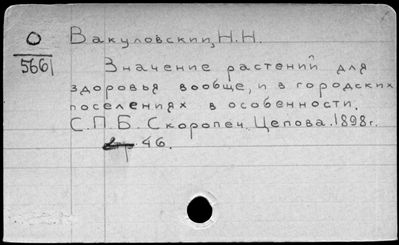 О
5661
Вакуловский, Н.Н.
Значение растений для
здоровья вообще, и в городских
поселениях в особенности.
С.П.Б. Скоропеч. Цепова. 1898г.
46.